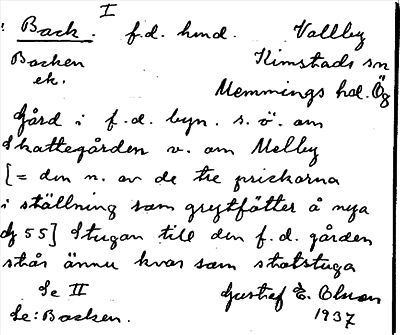 I
Back. f.d. hmd. Vallby
Backen Kimstads sn
ek. Memmings hd. Ög
Gård i f.d. byn. s.ö. om
Skattegården v. om Melby
[= den n. av de tre prickarna
i ställning som grytfötter å nya
dj 55] Stugan till den f.d. gården
står ännu kvar som statstuga
Se II Gustaf E. Olsson
Se: Backen. 1937